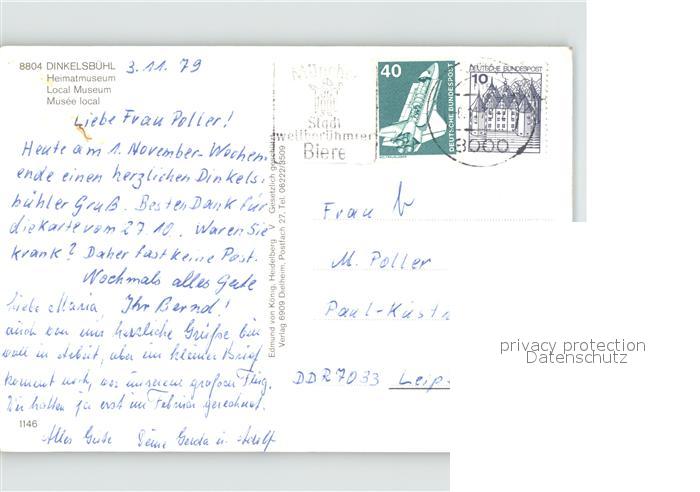 8804 DINKELSBÜHL 3.11.79
Heimatmuseum
Local Museum
Musée local
Liebe Frau Poller!
Heute am 1. November-Wochen-
ende einen herzlichen Dinkels-
bühler Gruß. Besten Dank für
die Karte vom 27.10. Waren Sie
krank? Daher fast keine Post.
Nochmals alles Gute
Ihr Bernd!
Liebe Maria,
auch von mir herzliche Grüße bin
voll in Arbeit, aber ein kleiner Brief
kommt noch, von unserem großen Flug.
Wir hatten ja erst im Februar gerechnet.
Alles Gute Deine Gerda u. Adolf
1146
Edmund von König, Heidelberg V Gesetzlich geschützt
Verlag 6909 Dielheim, Postfach 27, Tel. 06222/3509
München
Stadt
weltberühmter
Biere
40
DEUTSCHE BUNDESPOST
DEUTSCHE BUNDESPOST
10
8000
Frau
M. Poller
Paul-Küstn
DDR 7033 Leip
privacy protection
Datenschutz